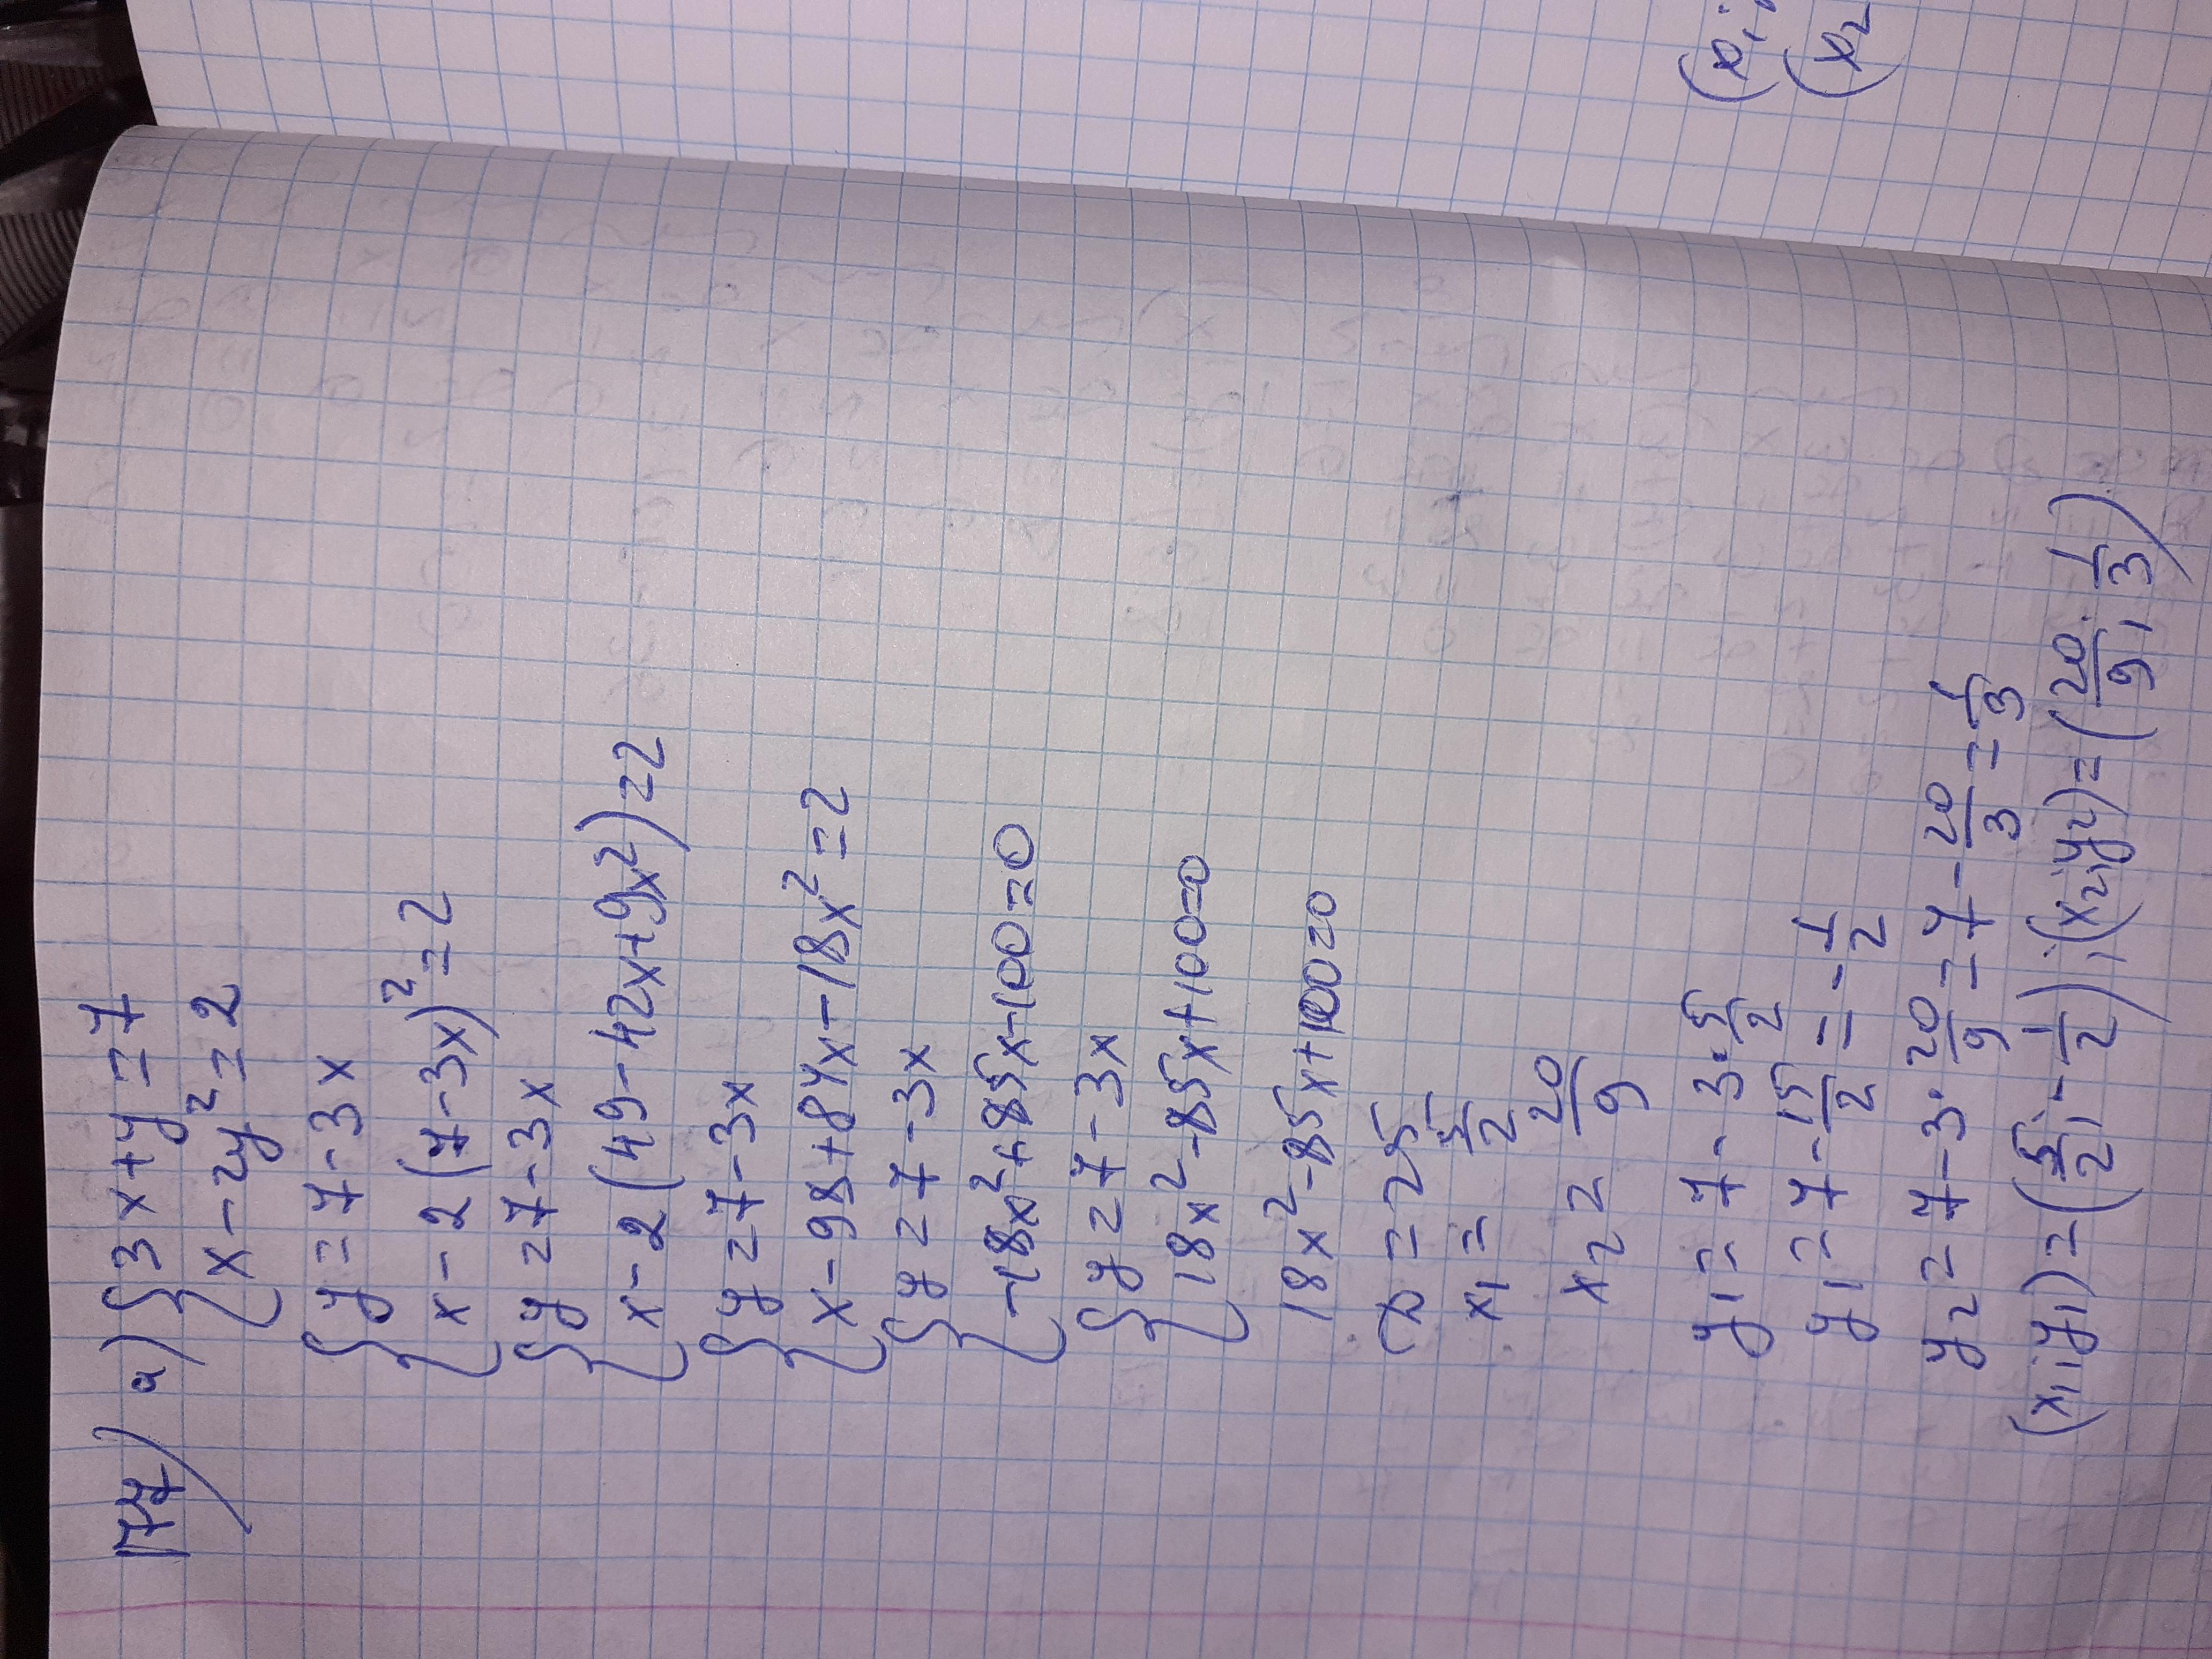 а) {3x+y=7
{x-2y²=2
{y=7-3x
{x-2(7-3x)²=2
{y=7-3x
{x-2(49-42x+9x²)=2
{y=7-3x
{x-98+84x-18x²=2
{y=7-3x
{-18x²+85x-100=0
{y=7-3x
{18x²-85x+100=0
18x²-85x+100=0
D=25
x₁=5/2
x₂=20/9
y₁=7-3·5/2
y₁=7-15/2=-1/2
y₂=7-3·20/9=7-20/3=1/3
(x₁,y₁)=(5/2,-1/2),(x₂,y₂)=(20/9,1/3)
(x₁,
(x₂